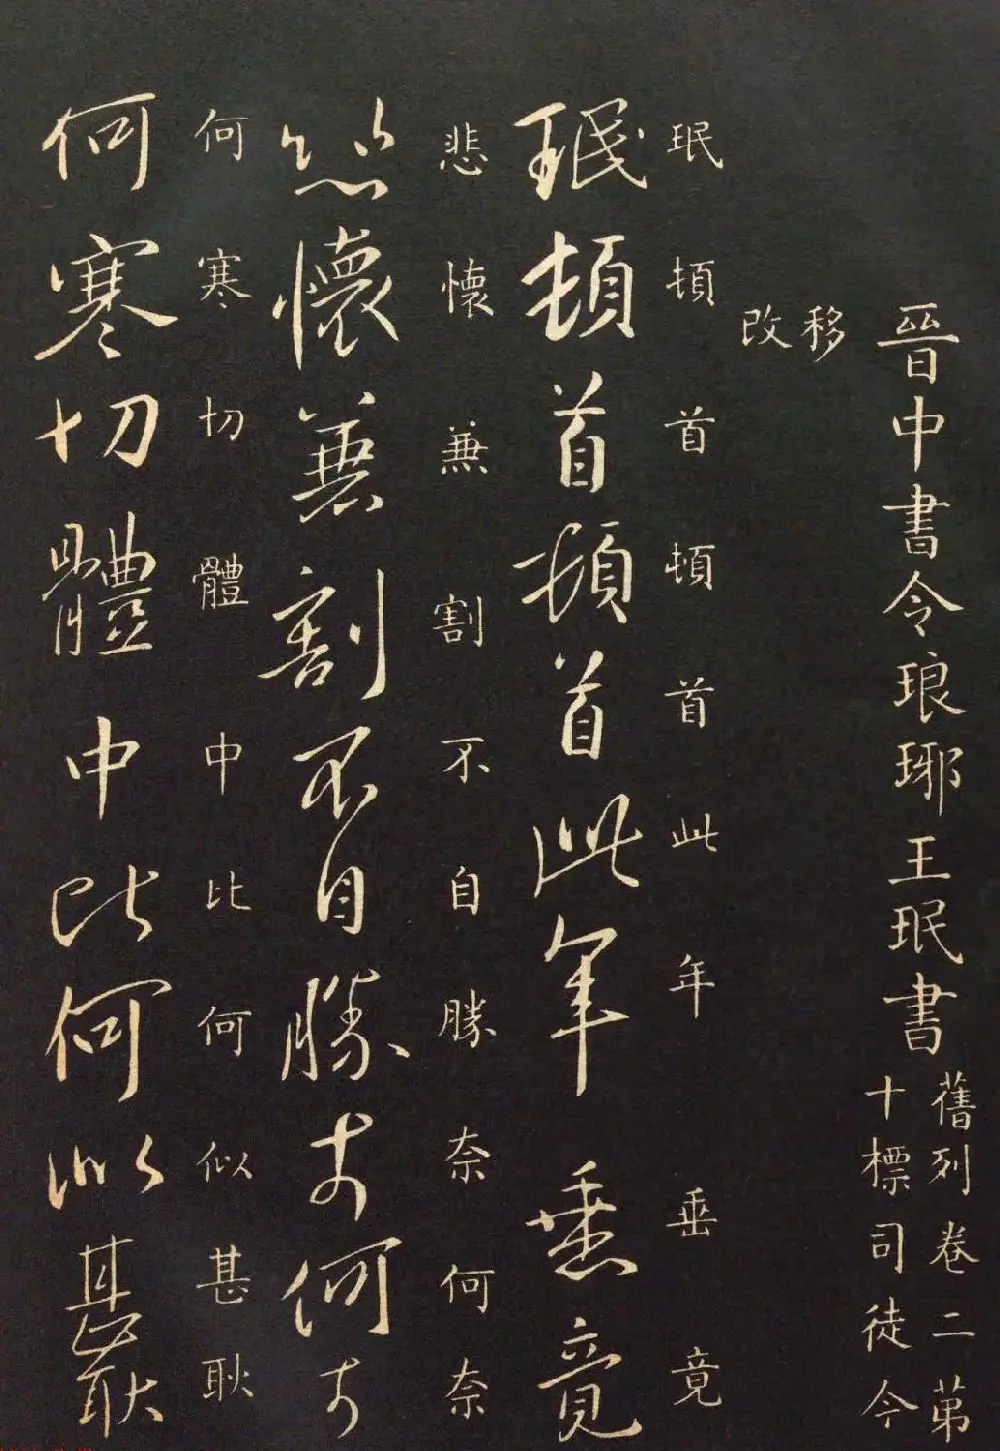 晉中書令琅琊王珉書
舊列卷二第
十標司徒今
移
改
珉頓首頓首此年垂竟
珉頓首頓首此年垂竟
悲懷兼割不自勝奈何奈
悲懷兼割不自勝奈何奈
何寒切體中比何似甚耿
何寒切體中比何似甚耿